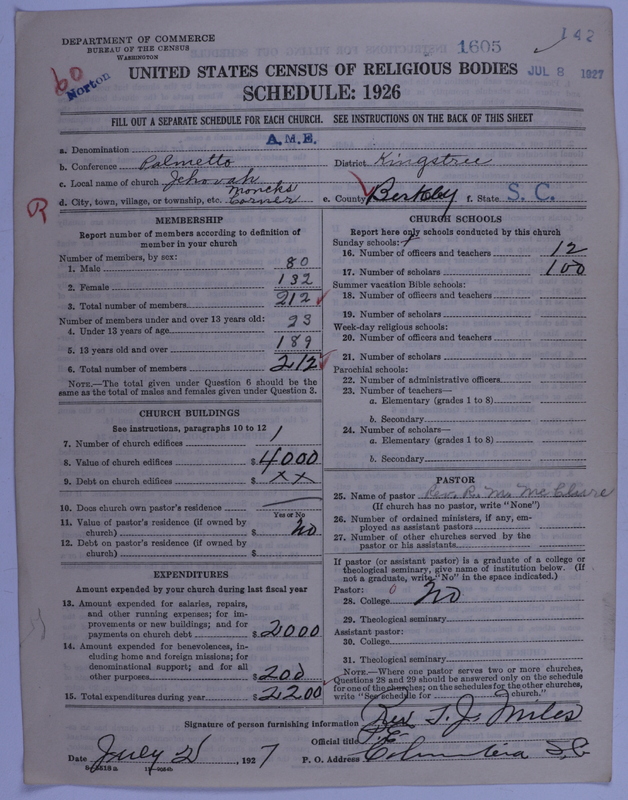 DEPARTMENT OF COMMERCE
BUREAU OF THE CENSUS
WASHINGTON
1605
142
60
Norton
UNITED STATES CENSUS OF RELIGIOUS BODIES
JUL 8 1927
SCHEDULE: 1926
FILL OUT A SEPARATE SCHEDULE FOR EACH CHURCH. SEE INSTRUCTIONS ON THE BACK OF THIS SHEET
a. Denomination A.M.E.
b. Conference Palmetto District Kingstree
c. Local name of church Jehovah
d. City, town, village, or township, etc. Moncks Corner e. County Berkley f. State S. C.
R
MEMBERSHIP
Report number of members according to definition of
member in your church
Number of members, by sex:
1. Male 80
2. Female 132
3. Total number of members 212
Number of members under and over 13 years old:
4. Under 13 years of age 23
5. 13 years old and over 189
6. Total number of members 212
NOTE.—The total given under Question 6 should be
same as the total of males and females given under Question 3.
CHURCH BUILDINGS
See instructions, paragraphs 10 to 12
7. Number of church edifices 1
8. Value of church edifices $ 4000
9. Debt on church edifices $ xx
10. Does church own pastor's residence
Yes or No
11. Value of pastor's residence (if owned by
church) $ No
12. Debt on pastor's residence (if owned by
church) $
EXPENDITURES
Amount expended by your church during last fiscal year
13. Amount expended for salaries, repairs,
and other running expenses; for im-
provements or new buildings; and for
payments on church debt $ 2000
14. Amount expended for benevolences, in-
cluding home and foreign missions; for
denominational support; and for all
other purposes $ 200
15. Total expenditures during year $ 2200
CHURCH SCHOOLS
Report here only schools conducted by this church
Sunday schools:
16. Number of officers and teachers 12
17. Number of scholars 100
Summer vacation Bible schools:
18. Number of officers and teachers
19. Number of scholars
Week-day religious schools:
20. Number of officers and teachers
21. Number of scholars
Parochial schools:
22. Number of administrative officers
23. Number of teachers—
a. Elementary (grades 1 to 8)
b. Secondary
24. Number of scholars—
a. Elementary (grades 1 to 8)
b. Secondary
PASTOR
25. Name of pastor Rev. R. M. McClure
(If church has no pastor, write "None")
26. Number of ordained ministers, if any, em-
ployed as assistant pastors
27. Number of other churches served by the
pastor or his assistants
If pastor (or assistant pastor) is a graduate of a college or
theological seminary, give name of institution below. (If
not a graduate, write "No" in the space indicated.)
Pastor: 0
28. College No
29. Theological seminary
Assistant pastor:
30. College
31. Theological seminary
NOTE.—Where one pastor serves two or more churches,
Questions 28 and 29 should be answered only on the schedule
for one of the churches; on the schedules for the other churches,
write "See schedule for church."
Signature of person furnishing information Rev T. J. Miles
Official title P.E.
Date July 2, 1927 P. O. Address Columbia S.C